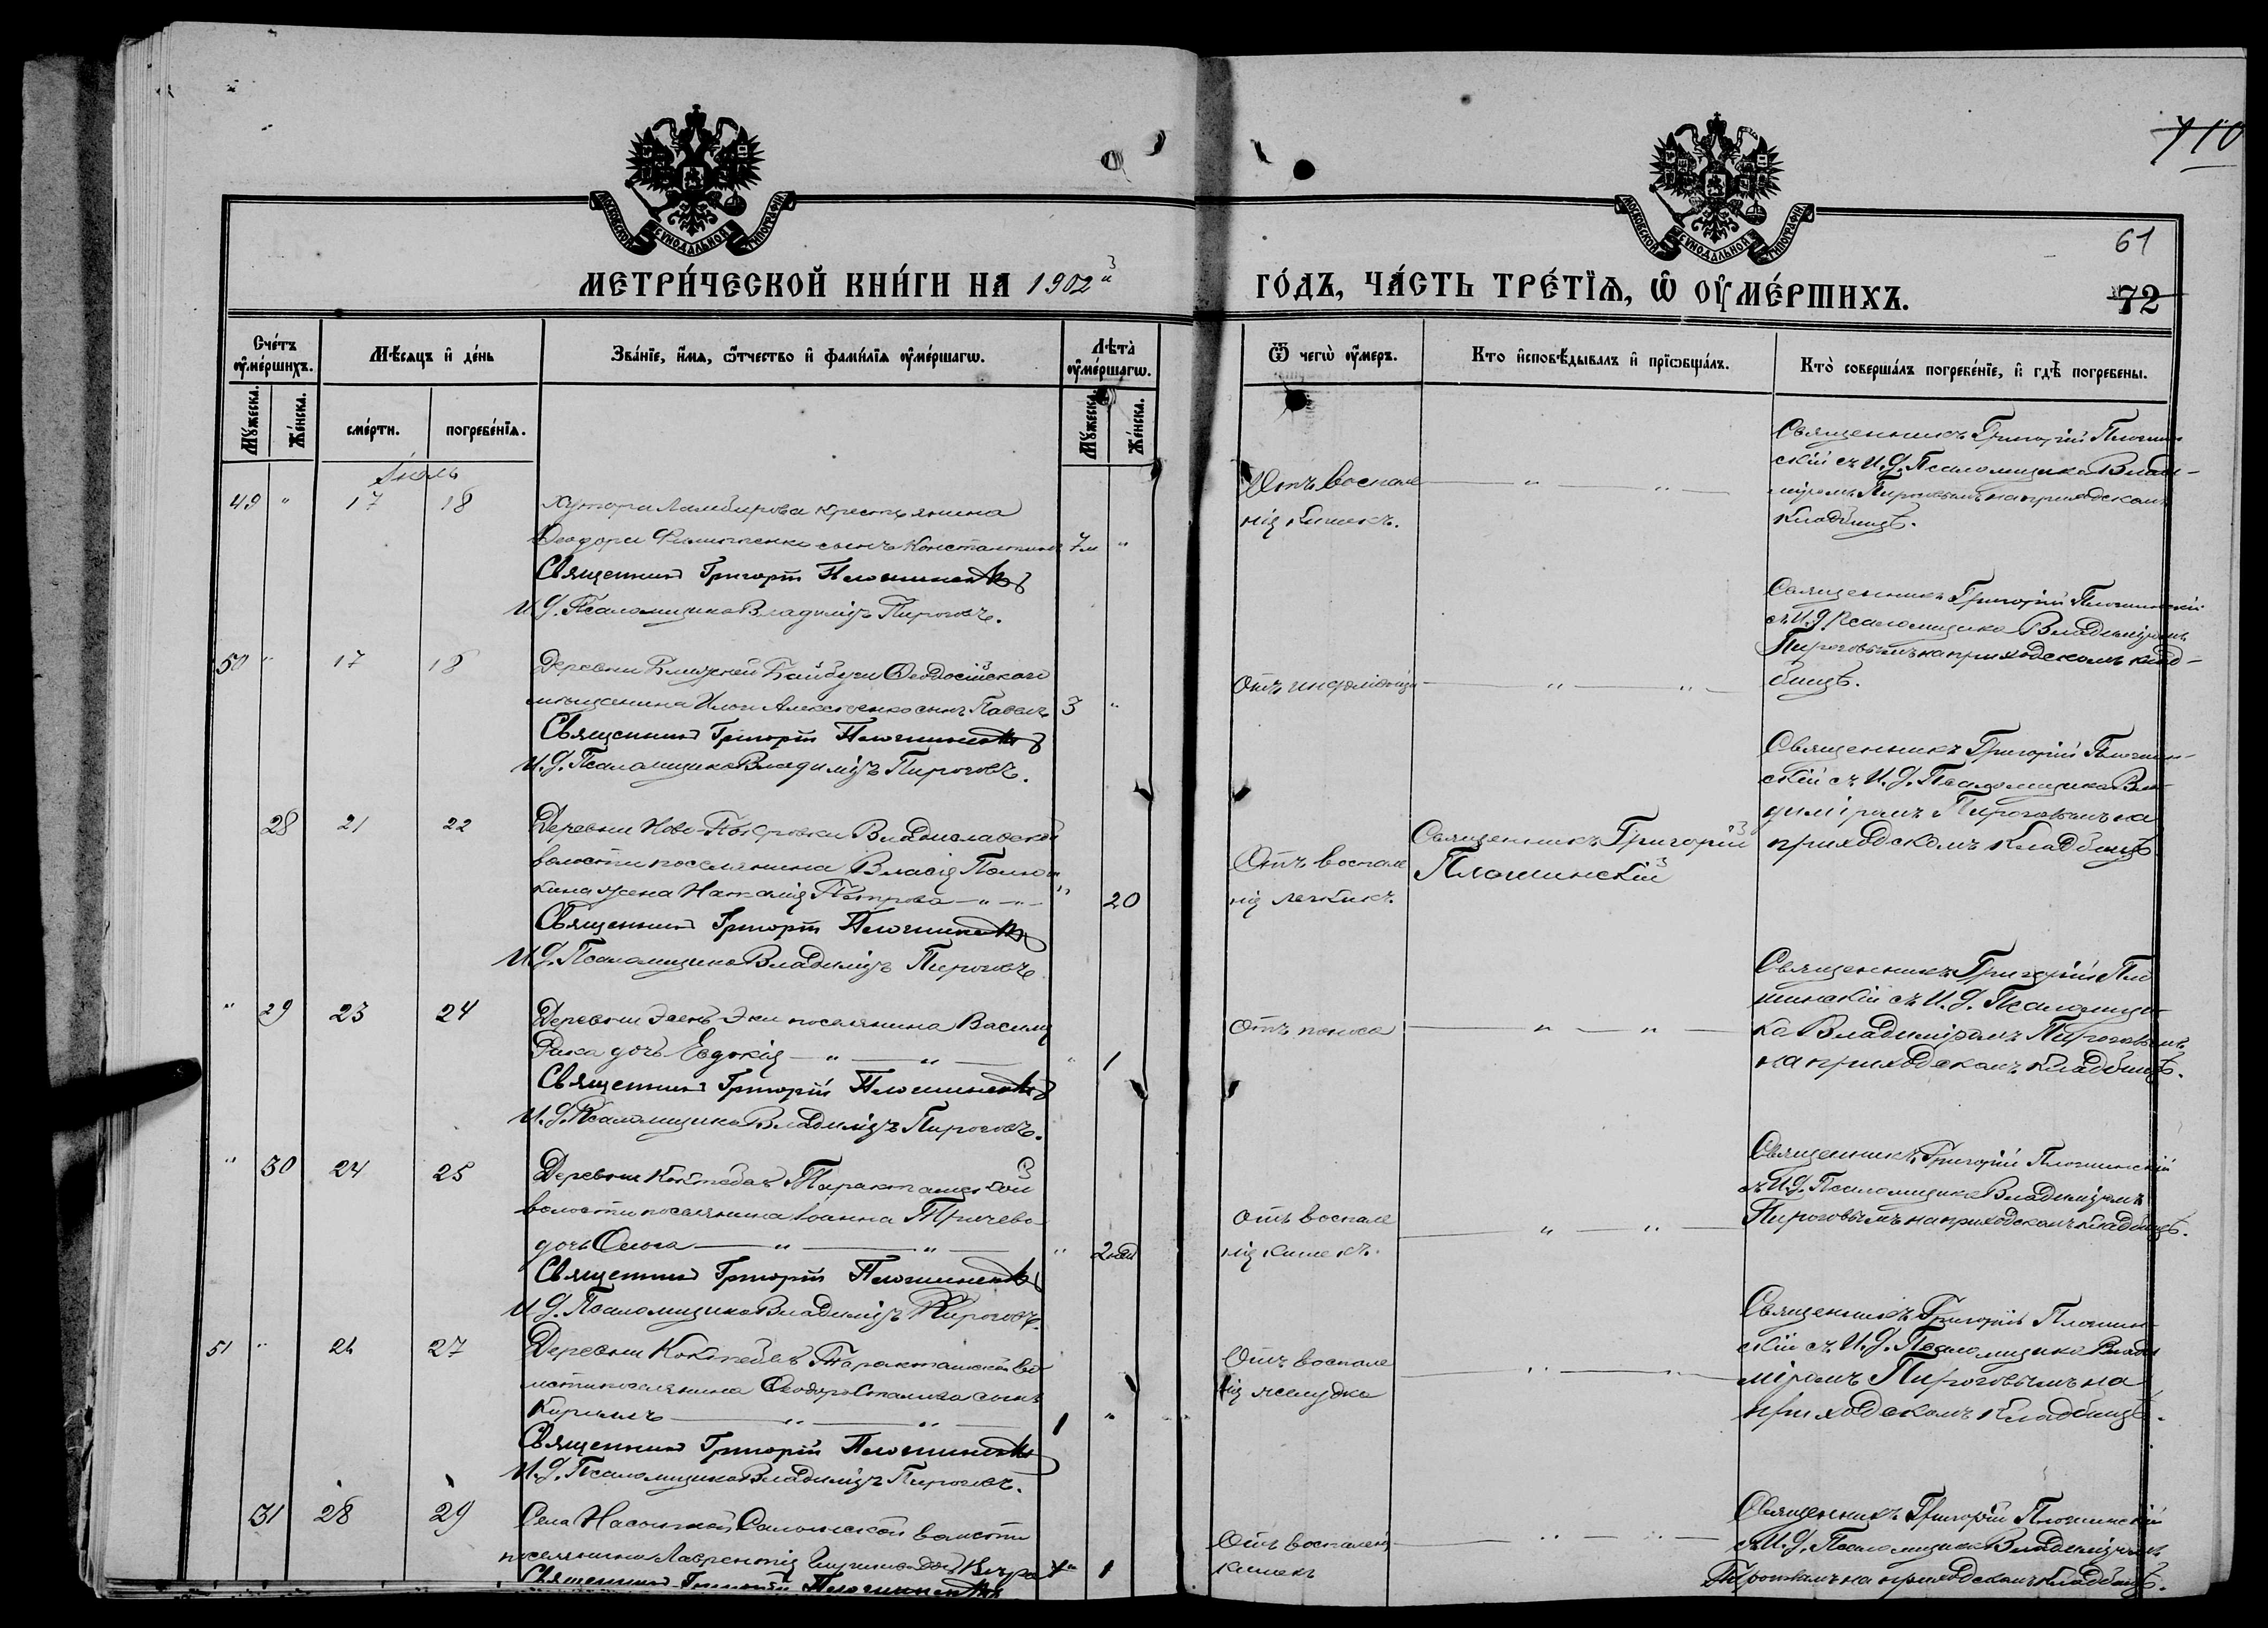 710
МОСКОВСКОЙ СѴНОДАЛЬНОЙ ТИПОГРАФІИ
МОСКОВСКОЙ СѴНОДАЛЬНОЙ ТИПОГРАФІИ
61
МЕТРИ́ЧЕСКОЙ КНИ́ГИ НА 1902й
ГО́ДЪ, ЧА́СТЬ ТРЕ́ТЇѦ, Ѽ ОУ҆МЕ́РШИХЪ.
72
Сче́тъ оу҆ме́ршихъ.
Мѣ́сяцъ и҆ де́нь
Зва́нїе, и҆́мя, ѻ҆́тчество и҆ фами́лїя оу҆ме́ршагѡ.
Лѣта̀ оу҆ме́ршагѡ.
Ѿ чегѡ̀ оу҆́меръ.
Кто̀ и҆сповѣ́дывалъ и҆ прїѡбща́лъ.
Кто̀ соверша́лъ погребе́нїе, и҆ гдѣ̀ погребены.
Му́жеска.
Же́нска.
сме́рти.
погребе́нїя.
Му́жеска.
Же́нска.
Іюль
49 " 17 18
Хутора Ламбирова крестьянина
Ѳеодора Филипенко сынъ Константинъ 7м "
Священникъ Григорій Плошинскій
И. Д. Псаломщика Владиміръ Пироговъ.
Отъ воспале
нія кишекъ.
" "
Священникъ Григорій Плошин
скій съ И. Д. Псаломщика Влади-
міромъ Пироговымъ на приходскомъ
кладбищѣ.
50 " 17 18
Деревни Ближней Байбуги Ѳеодосійскаго
мѣщанина Ильи Алексеенко сынъ Павелъ 3 "
Священникъ Григорій Плошинскій
И. Д. Псаломщика Владиміръ Пироговъ.
Отъ инфлюэнци
" "
Священникъ Григорій Плошинскій
съ И. Д. Псаломщика Владиміромъ
Пироговымъ на приходскомъ клад-
бищѣ.
28 21 22
Деревни Ново-Покровки Владиславской
волости поселянина Власія
жена Наталія Петрова " " " 20
Священникъ Григорій Плошинскій
И. Д. Псаломщика Владиміръ Пироговъ
Отъ воспале
нія легкихъ.
Священникъ Григорій
Плошинскій
Священникъ Григорій Плошин-
скій съ И. Д. Псаломщика Вла-
диміромъ Пироговымъ на
приходскомъ кладбищѣ
" 29 23 24
Деревни Эсенъ Эки поселянина Василія
дочь Евдокія " " " 1
Священникъ Григорій Плошинскій
И. Д. Псаломщика Владиміръ Пироговъ.
Отъ поноса
" "
Священникъ Григорій Пло
шинскій съ И. Д. Псаломщи-
ка Владиміромъ Пироговымъ
на приходскомъ кладбищѣ.
" 30 24 25
Деревни Коктебель Таракташской
волости поселянина Іоанна Тричева
дочь Ольга " " " 2 нед
Священникъ Григорій Плошинскій
И. Д. Псаломщика Владиміръ Пироговъ.
Отъ воспале
нія кишекъ.
" "
Священникъ Григорій Плошинскій
съ И. Д. Псаломщика Владиміромъ
Пироговымъ на приходскомъ кладбищѣ.
51 " 26 27
Деревни Коктебель Таракташской во
лости поселянина Ѳеодора Стамова сынъ
Кириллъ " " 1 "
Священникъ Григорій Плошинскій
И. Д. Псаломщика Владиміръ Пироговъ.
Отъ воспале
нія желудка
" "
Священникъ Григорій Плошин-
скій съ И. Д. Псаломщика Влади
міромъ Пироговымъ на
приходскомъ кладбищѣ.
31 28 29
Села Насыпкой Салынской волости
поселянина Лаврентія дочь Вѣра " 1
Священникъ Григорій Плошинскій
Отъ воспаленія
кишекъ
" "
Священникъ Григорій Плошинскій
съ И. Д. Псаломщика Владиміромъ
Пироговымъ на приходскомъ кладбищѣ.